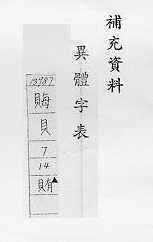 補充資料
異體字表
13787
貝
7
14
賄